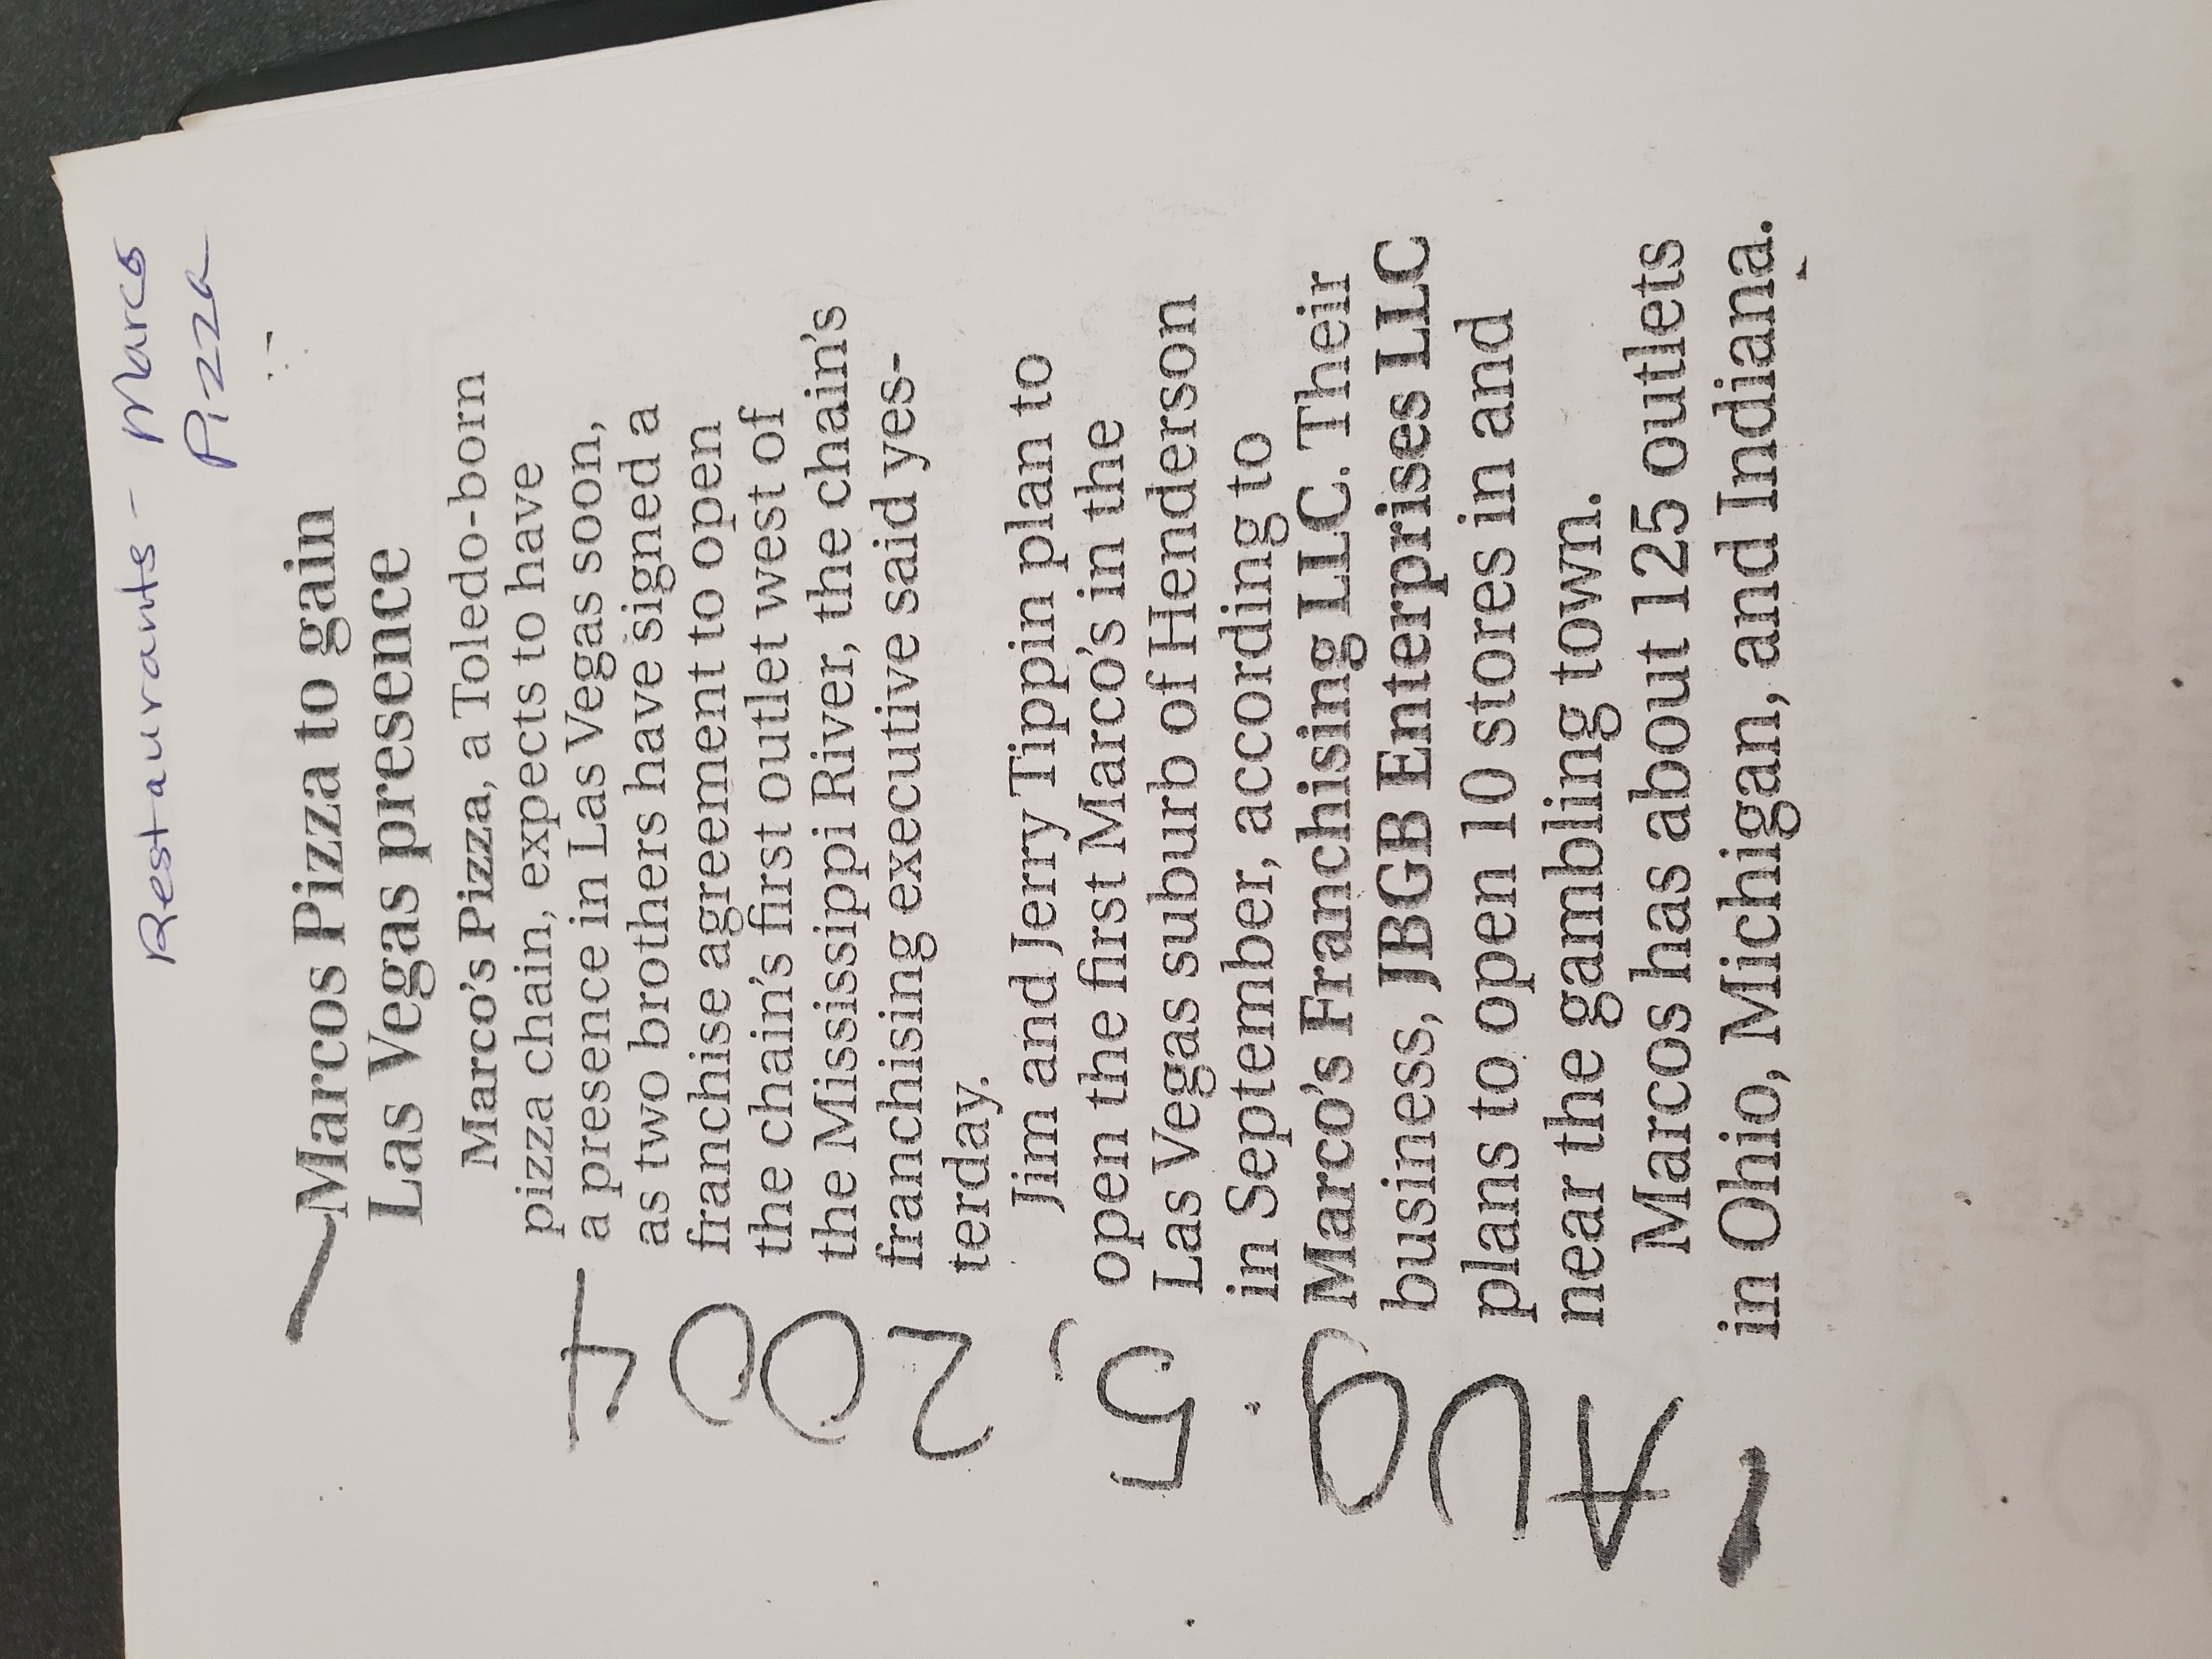 Restaurants - Marcos
Pizza
Marcos Pizza to gain
Las Vegas presence
Marco's Pizza, a Toledo-born
pizza chain, expects to have
a presence in Las Vegas soon,
as two brothers have signed a
franchise agreement to open
the chain's first outlet west of
the Mississippi River, the chain's
franchising executive said yes-
terday.
Jim and Jerry Tippin plan to
open the first Marco's in the
Las Vegas suburb of Henderson
in September, according to
Marco's Franchising LLC. Their
business, JBGB Enterprises LLC
plans to open 10 stores in and
near the gambling town.
Marcos has about 125 outlets
in Ohio, Michigan, and Indiana.
AUG 5, 2007